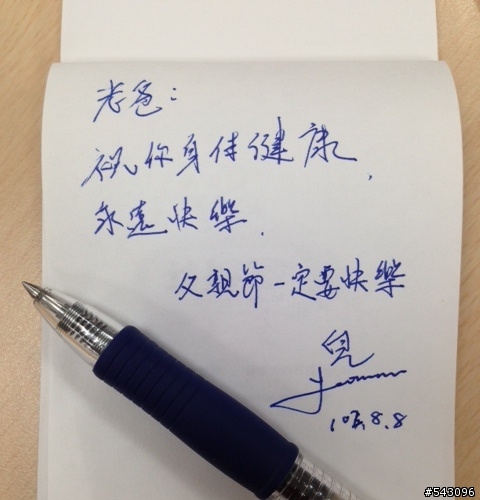 老爸：
祝你身体健康，
永遠快樂．
父親節一定要快樂
兒
8.8
#543096